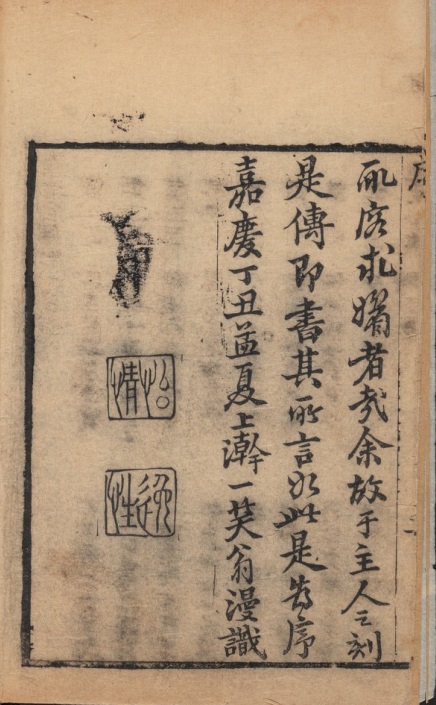 取容求媚者哉余故于主人之刻
是傳即書其所言如此是為序
嘉慶丁丑孟夏上澣一笑翁漫識
怡情
逸性